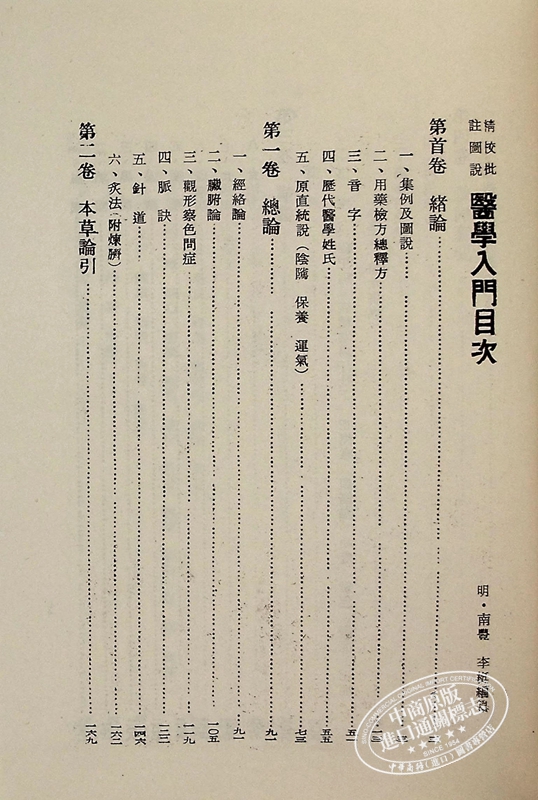 精校批
註圖說
醫學入門目次
明·南豐 李
第首卷 緒論
一、集例及圖說
二、用藥檢方總釋方
三、音字 五一
四、歷代醫學姓氏 五五
五、原直統說（陰隲 保養 運氣） 七三
第一卷 總論 九一
一、經絡論 九一
二、臟腑論 一〇五
三、觀形察色問症 一一九
四、脈訣 一二二
五、針道 一四六
六、灸法（附煉臍） 一六二
第二卷 本草論引 一六九
中商原版
進口通關標志
SINCE 1954